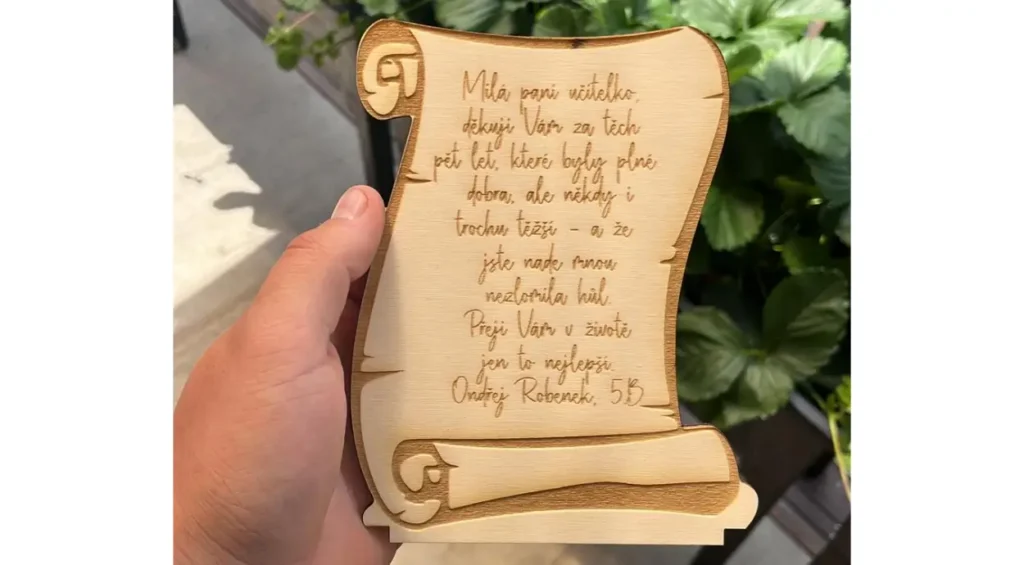 Milá paní učitelko,
děkuji Vám za těch
pět let, které byly plné
dobra, ale někdy i
trochu těžší - a že
jste nade mnou
nezlomila hůl.
Přeji Vám v životě
jen to nejlepší.
Ondřej Robenek, 5.B